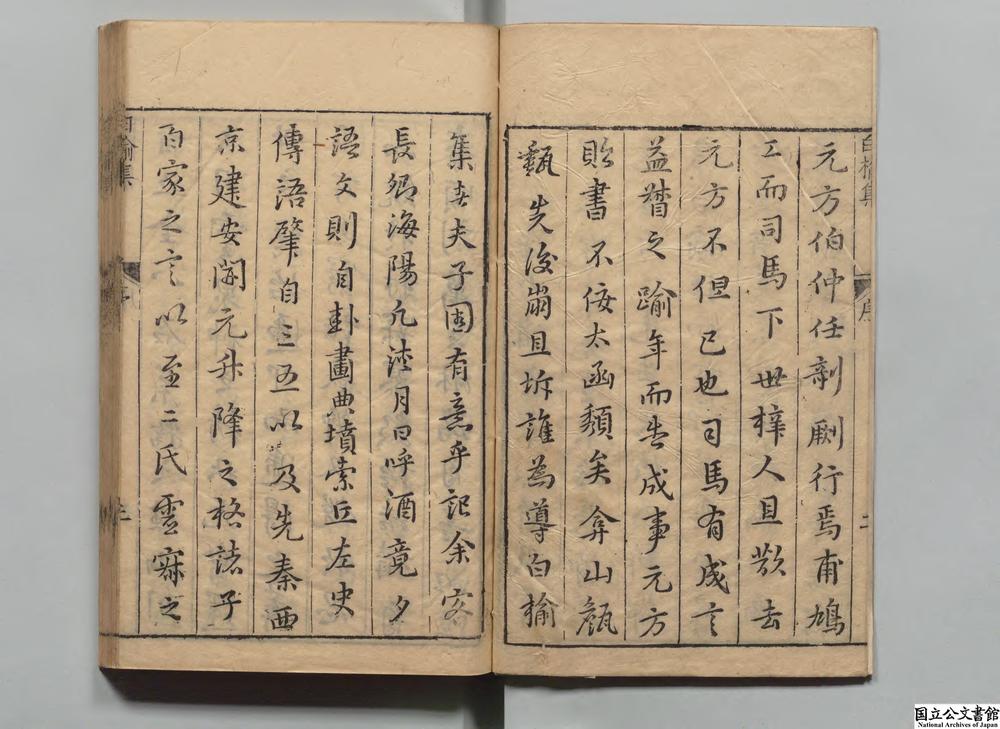 元方伯仲任剞劂行焉甫鳩
工而司馬下世梓人且歘去
元方不但已也司馬有成言
益朁之踰年而告成事元方
貽書不佞太函頹矣弇山
甄失後崩且坼誰為導白榆
集者夫子固有意乎記余客
長卿海陽凡浹月日呼酒竟夕
語文則自卦畫典墳索丘左史
傳語肇自三五以及先秦西
京建安開元升降之格諸子
百家之言以至二氏靈寂之
白榆集
序
二
白榆集
序
三
国立公文書館
National Archives of Japan